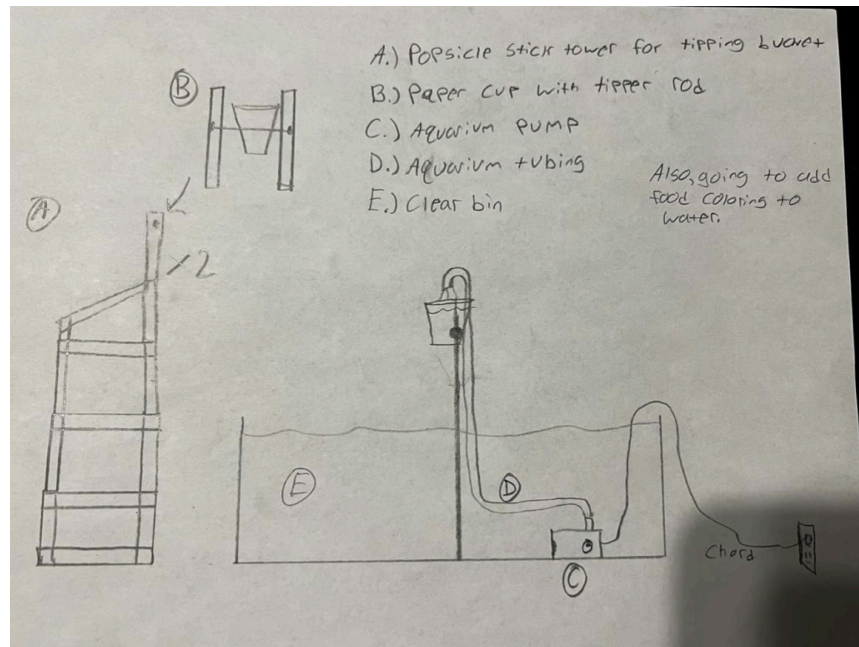 A.) Popsicle stick tower for tipping bucket
B.) Paper cup with tipper rod
C.) Aquarium pump
D.) Aquarium tubing
E.) Clear bin
Also, going to add
food coloring to
water.
B
A
x2
E
D
C
Chord